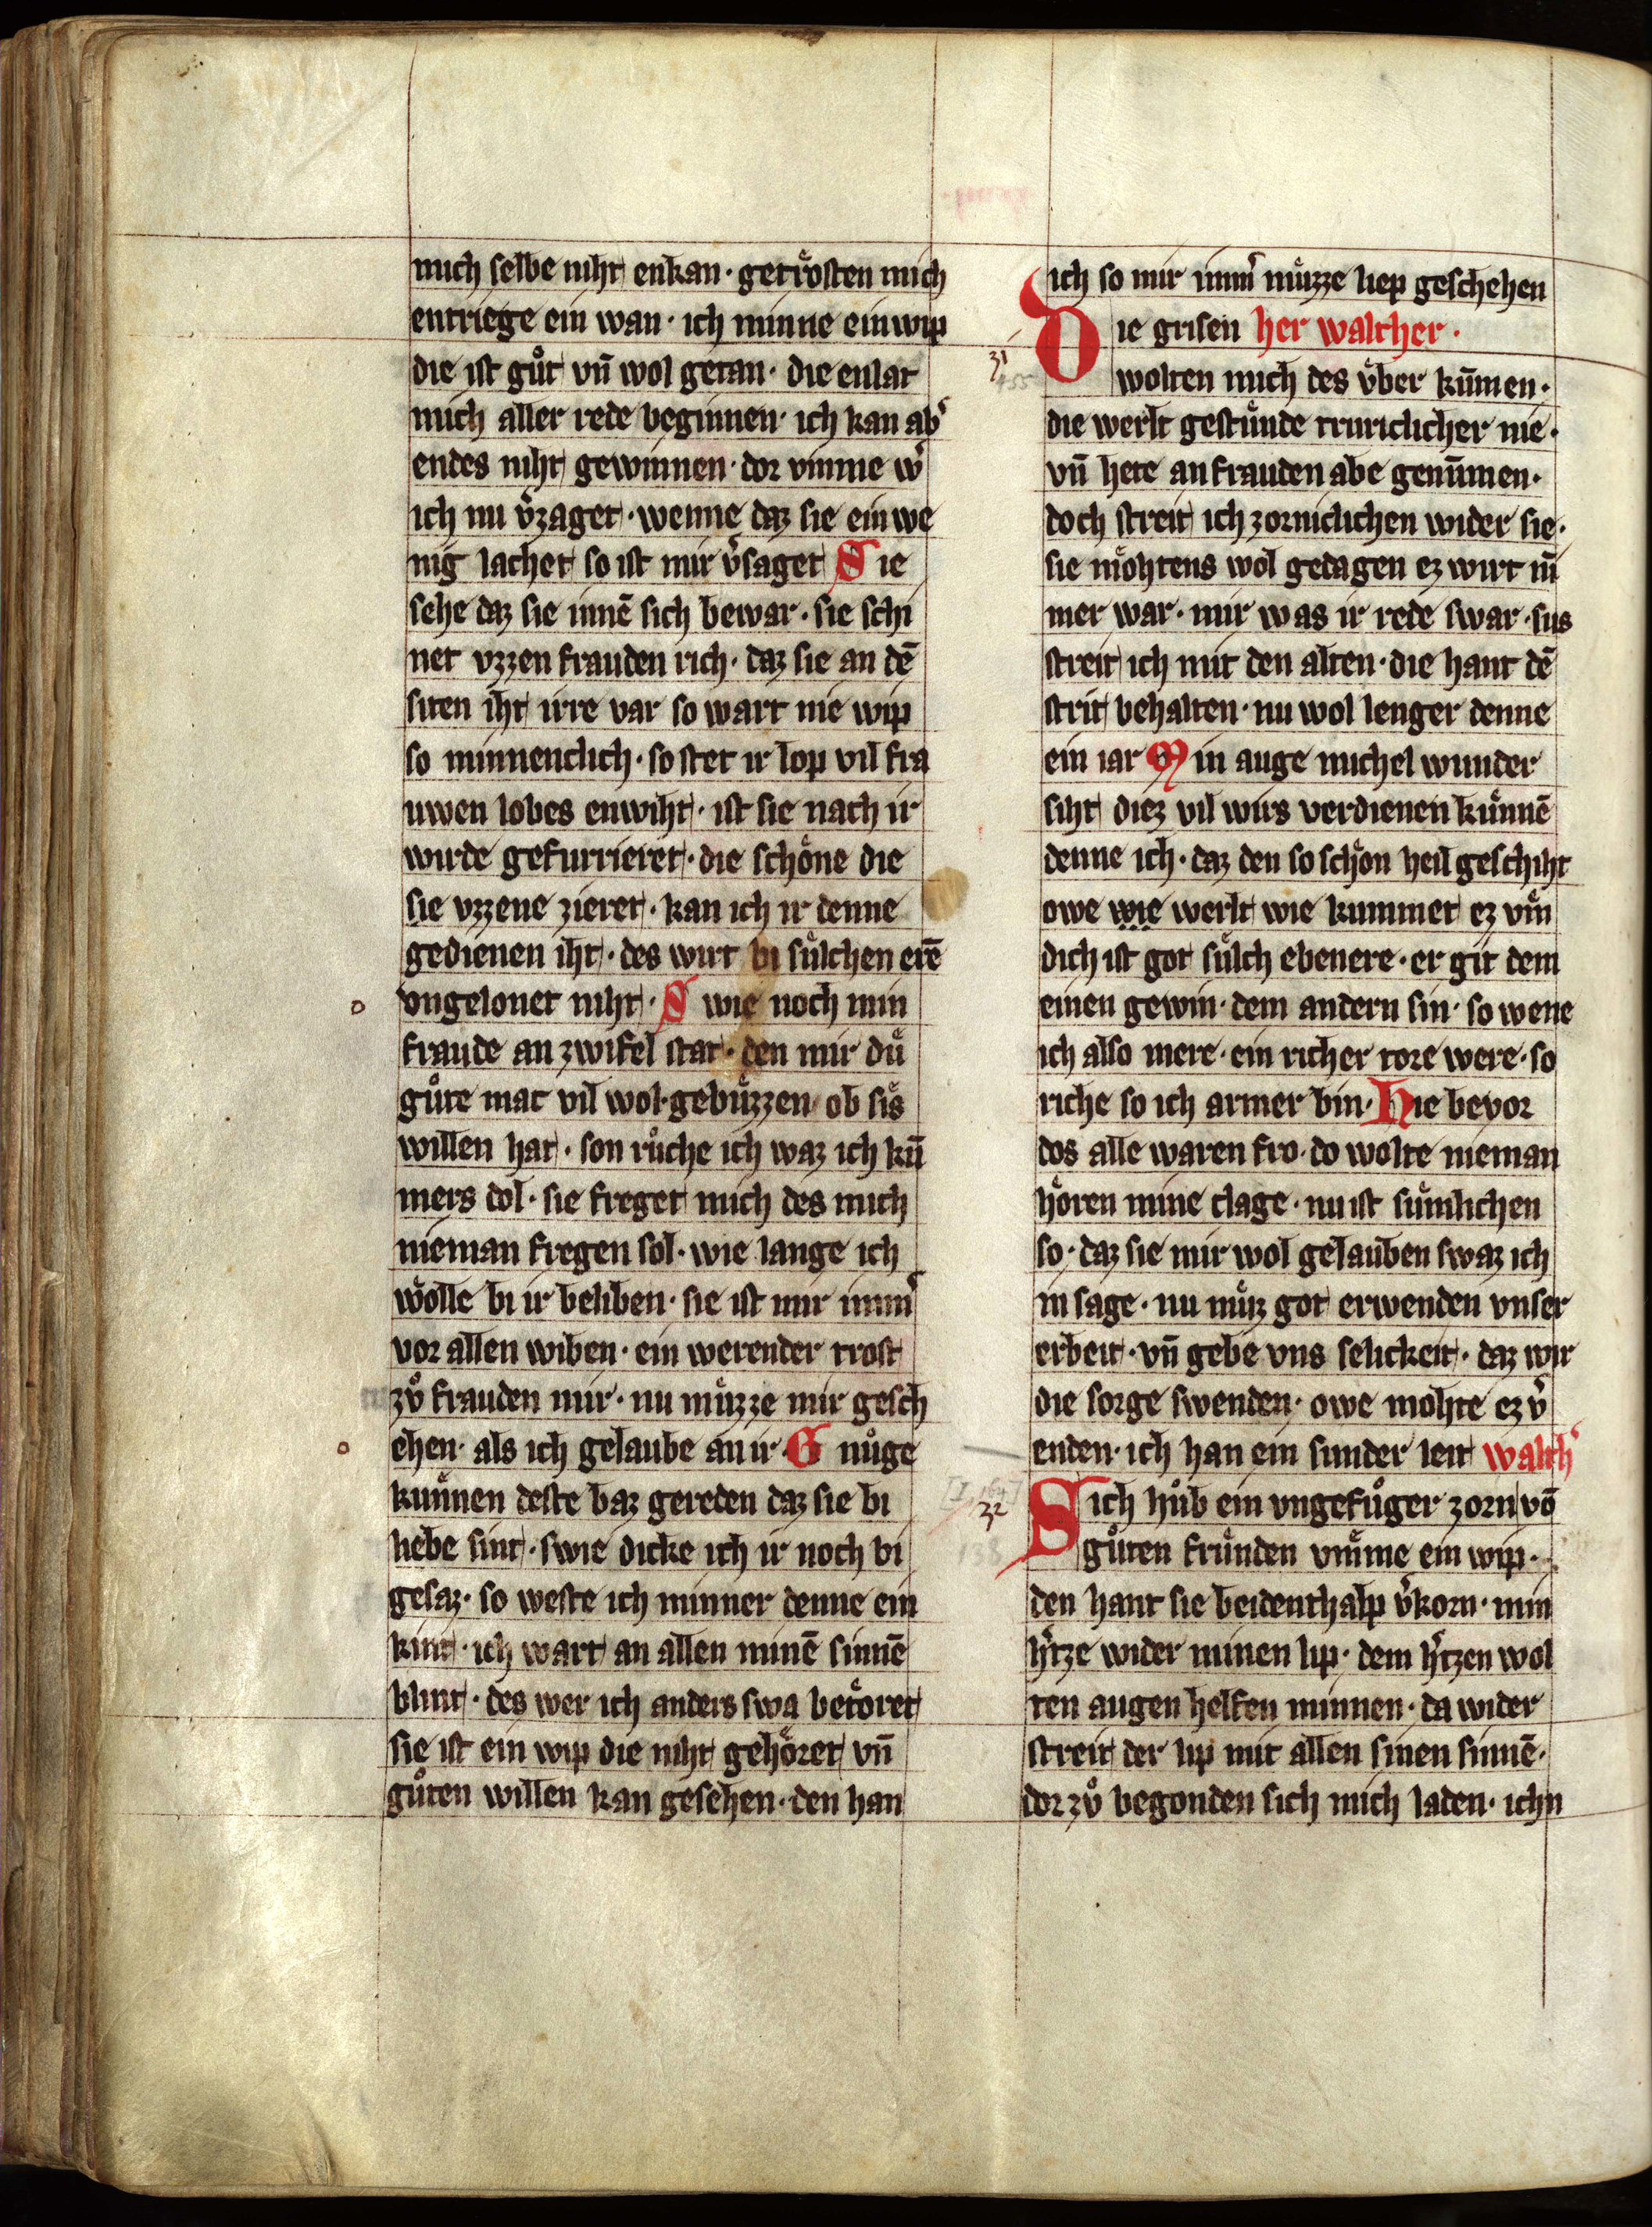 mich selbe niht enkan · getrͤosten mich
entriege ein wan · ich minne ein wip
die ist guͦt vn̄ wol getan · die enlat
mich aller rede beginnen · ich kan ab͛
endes niht gewinnen · dor vmme w͛
ich nu v͛zaget · wenne daz sie ein we
nig lachet so ist mir v͛saget Sie
sehe daz sie innē sich bewar · sie schi
net vzzen frauden rich · daz sie an dē
siten iht irre var so wart nie wip
so minnenclich · so stet ir lop vil fra
uwen lobes enwiht · ist sie nach ir
wirde gefurrieret · die schoͤne die
sie vzzene zieret · kan ich ir denne
gedienen iht · des wirt bi suͤlchen erē
vngelonet niht · Swie noch min
fraude an zwifel stat · den mir duͤ
guͦte mac vil wol · gebuͤzzen ob sis
willen hat · son ruͦche ich waz ich kū
mers dol · sie freget mich des mich
nieman fregen sol · wie lange ich
woͤlle bi ir beliben · sie ist mir imm͛
vor allen wiben · ein werender trost
zuͦ frauden mir · nu muͤzze mir gesch
ehen · als ich gelaube an ir · Gnuͦge
kuͤnnen deste baz gereden daz sie bi
liebe sint · swie dicke ich ir noch bi
gesaz · so weste ich minner denne ein
kint · ich wart an allen minē sinnē
blint · des wer ich anders swa betoͤret
sie ist ein wip die niht gehoͤret vn̄
guͦten willen kan gesehen · den han
ich so mir imm͛ muͤzze liep geschehen
Die grisen her walther ·
31
wolten mich des vͤber kūmen ·
die werlt gestuͤnde truriclicher nie ·
vn̄ hete an frauden abe genūmen ·
doch streit ich zorniclichen wider sie ·
sie moͤhtens wol gedagen ez wirt nī
mer war · mir was ir rede swar · sus
streit ich mit den alten · die hant dē
strit behalten · nu wol lenger denne
ein iar Min auge michel wunder
siht diez vil wirs verdienen kuͤnnē
denne ich · daz den so schoͤn heil geschiht
owe wie werlt wie kummet ez vm̄
dich ist got suͤlch ebenere · er git dem
einen gewin · dem andern sin · so wene
ich also mere · ein richer tore were · so
riche so ich armer bin · Hie bevor
dos alle waren fro · do wolte nieman
hoͤren mine clage · nu ist suͤmlichen
so · daz sie mir wol gelauben swaz ich
in sage · nu muͤz got erwenden vnser
erbeit · vn̄ gebe vns selickeit · daz wir
die sorge swenden · owe mohte ez v͛
enden · ich han ein sunder leit walth͛
32
Sich huͦb ein vngefuͦger zorn vō
guͦten fruͤnden vmme ein wip ·
den hant sie beidenthalp v͛korn · min
h͛tze wider minen lip · dem h͛tzen wol
ten augen helfen minnen · da wider
streit der lip mit allen sinen sinnē ·
dor zuͦ begonden sich mich laden · ichn